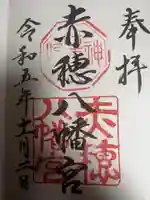 奉拝
赤穂八幡宮
令和五年十一月二日
赤穂
八幡宮